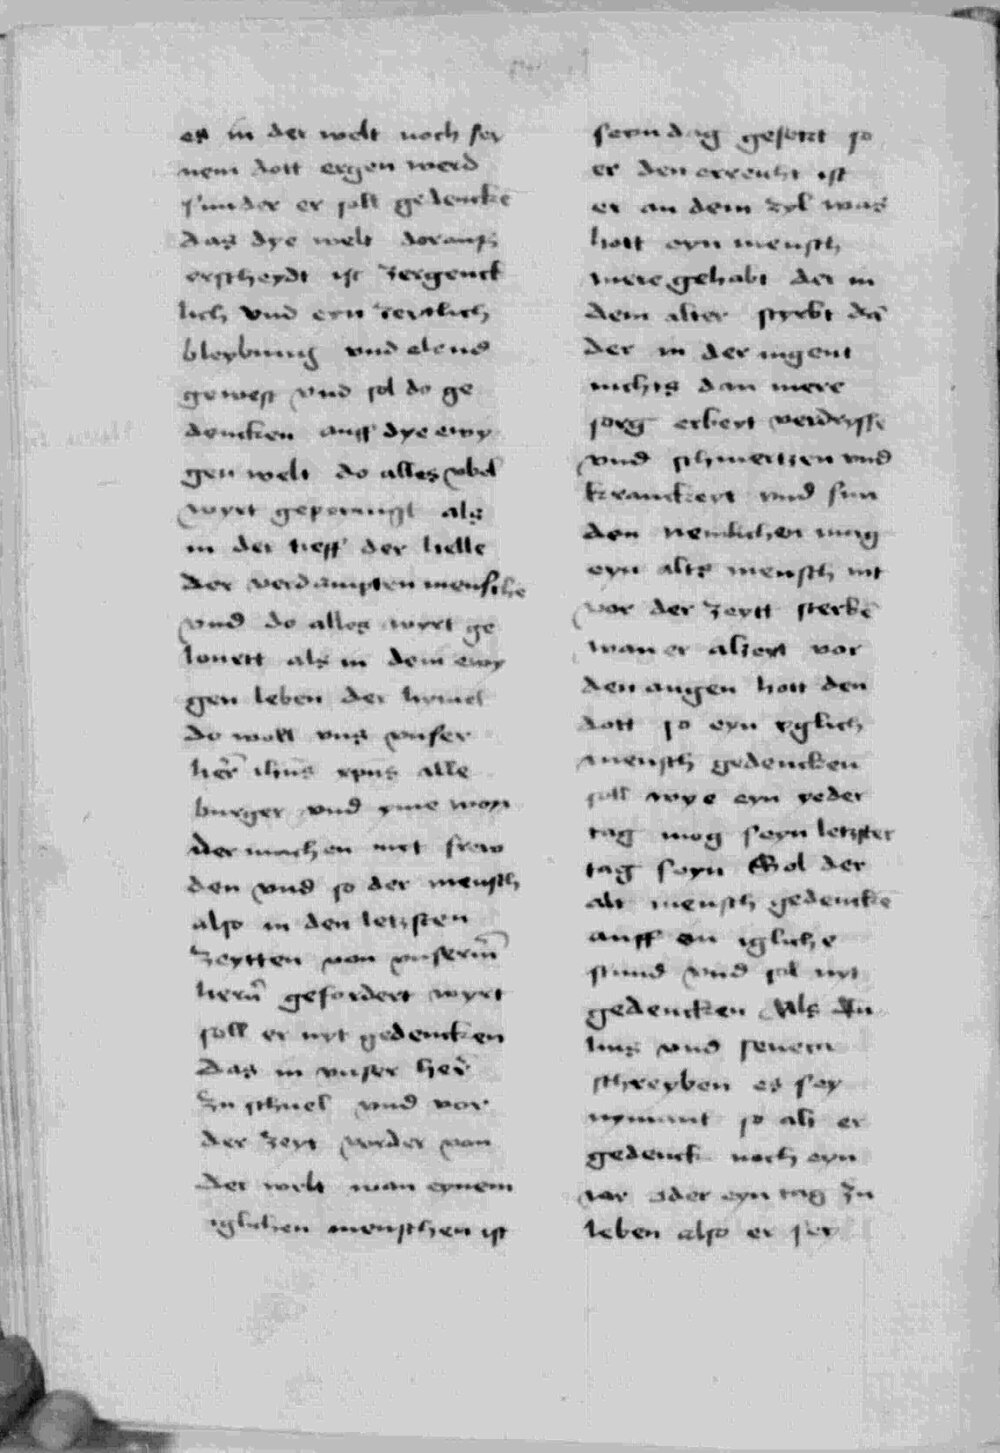 es in der welt noch sey
nem dott ergen werd
sunder er soll gedencke
das dye welt dorauß
erscheydt ist zergenck
lich vnd eyn zeytlich
bleybung vnd elend
gewest vnd sol do ge
dencken auff dye ewy
gen welt do alles vbel
wyrt gepeynigt als
in der tieff der helle
der verdampten mensche
vnd do alles wyrt ge
lonett als in dem ewy
gen leben der hymel
do woll vns vnser
her ihus xpus alle
burger vnd yme won
der machen mit frew
den vnd so der mensch
also in den letzsten
zeytten von vnserm
hern gefordert wyrt
soll er nyt gedencken
das in vnser her
zu schnel vnd vor
der zeyt vorder von
der welt wan eynem
iglichen menschen ist
seyn dag gesetzt so
er den erreicht ist
er an dem zyl was
hott eyn mensch
mere gehabt der in
dem alter styrbt dan
der in der iugent
nichts dan mere
sorg erbeyt verdrysse
vnd schmertzen vnd
kranckeyt vnd sun
den nemlichen mag
eyn alts mensch nit
vor der zeytt sterbe
wan er alzeyt vor
den augen hott den
dott so eyn yglich
mensch gedencken
soll wye eyn yeder
tag mog seyn letzster
tag seyn Sol der
alt mensch gedencke
auff ein igliche
stund vnd sol nyt
gedencken Als Tu
lius vnd seneca
schreyben es sey
nymant so alt er
gedenck noch eyn
iar oder eyn tag zu
leben also er sey